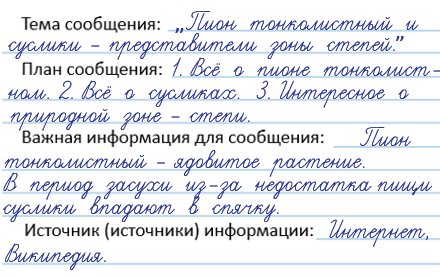 Тема сообщения: „Пион тонколистный и
суслики – представители зоны степей.”
План сообщения: 1. Всё о пионе тонколист-
ном. 2. Всё о сусликах. 3. Интересное о
природной зоне – степи.
Важная информация для сообщения: Пион
тонколистный – ядовитое растение.
В период засухи из-за недостатка пищи
суслики впадают в спячку.
Источник (источники) информации: Интернет,
Википедия.